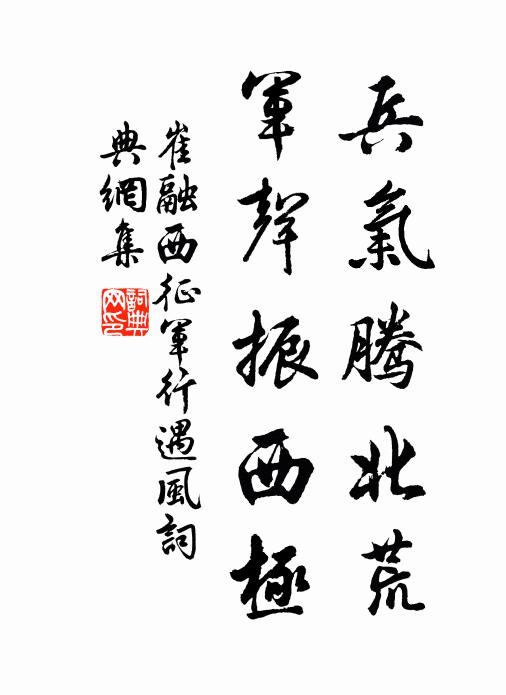 兵氣騰北荒
軍聲振西極
崔融西征軍行遇風詞
典網集
詞典
网印